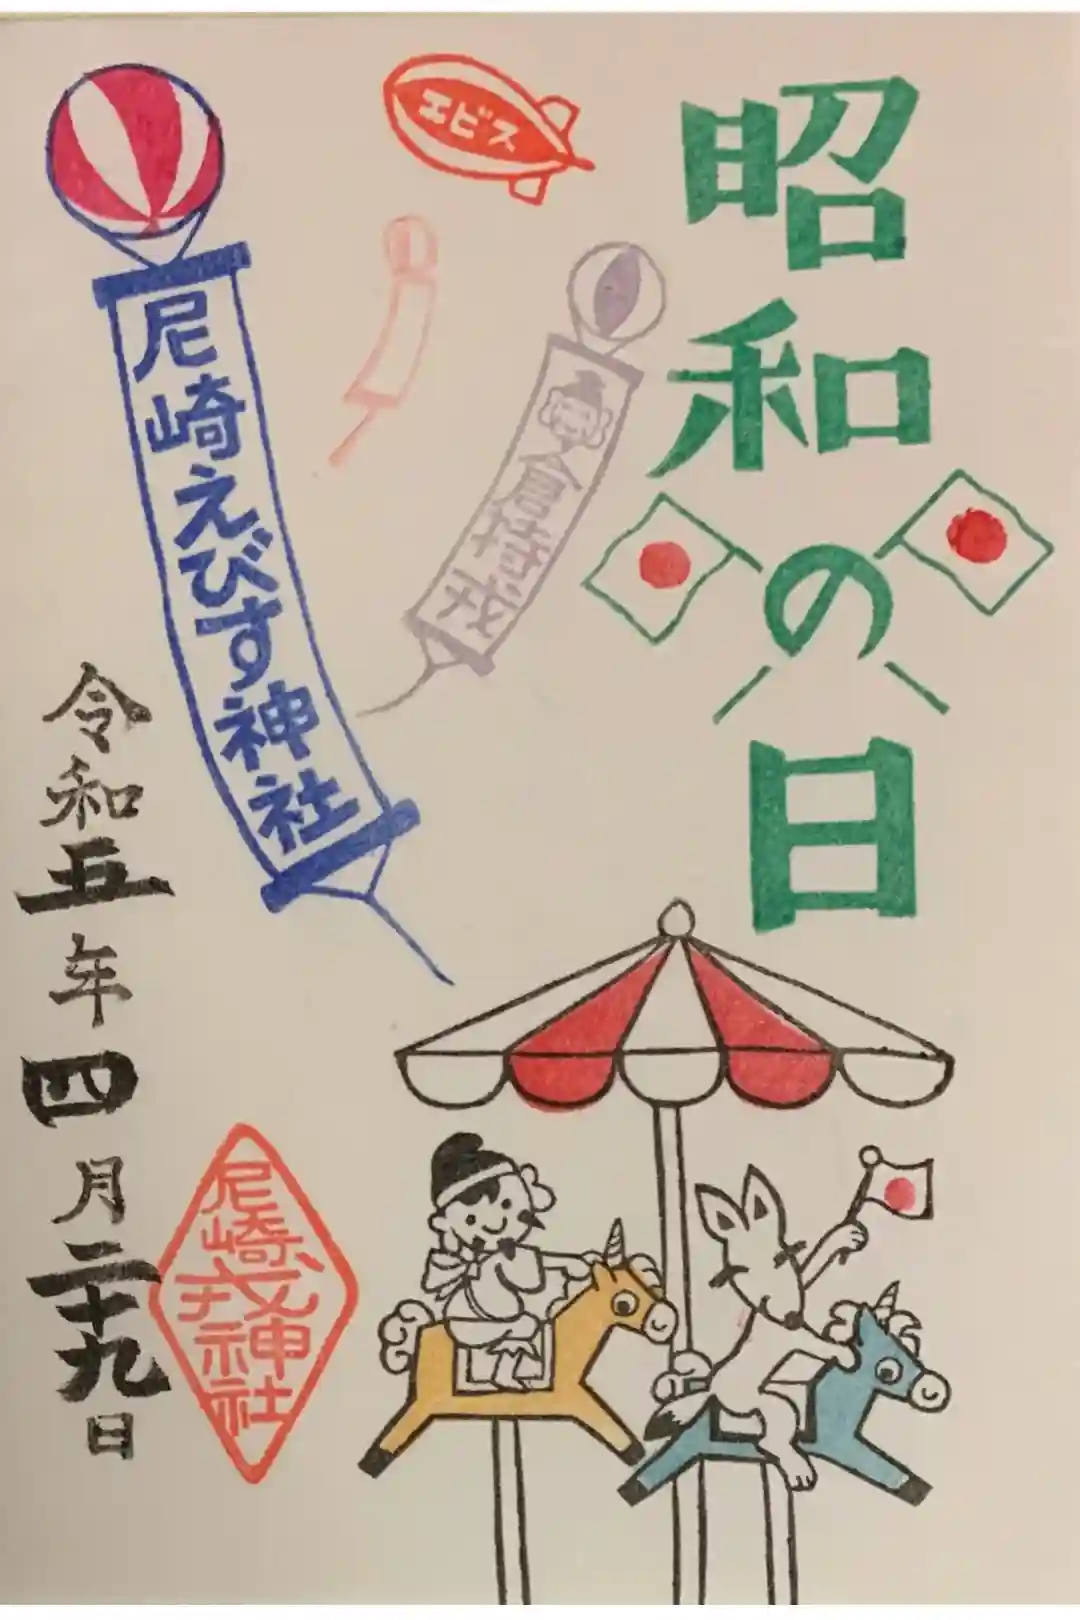 昭和の日
エビス
尼崎えびす神社
令和五年四月二十九日
尼崎戎神社